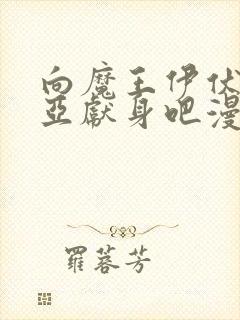 向魔王伊伏
亞獻身吧漫
羅蓉芳